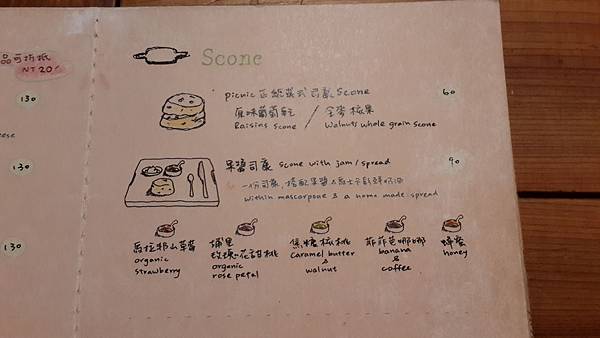 品可折抵
NT 20!
130
ese
130
130
Scone
picnic 正統英式司康 Scone 60
原味葡萄乾 / 全麥核果
Raisins Scone / Walnuts whole grain scone
果醬司康 Scone with jam / spread 90
一份司康，搭配果醬&馬士卡彭鮮奶油
within mascarpone & a home made spread
馬拉邦山草莓
organic
strawberry
埔里
玫瑰花甜桃
organic
rose petal
焦糖核桃
caramel butter
&
walnut
菲菲芭娜娜
banana
&
coffee
蜂蜜
honey